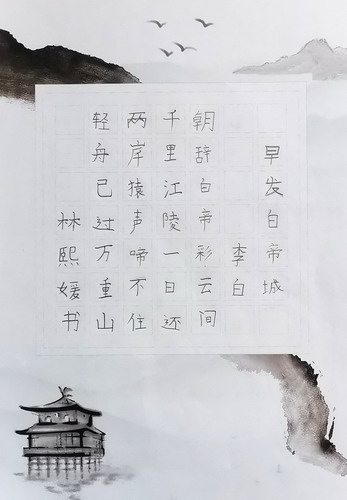 早发白帝城
李白
朝辞白帝彩云间
千里江陵一日还
两岸猿声啼不住
轻舟已过万重山
林熙媛书